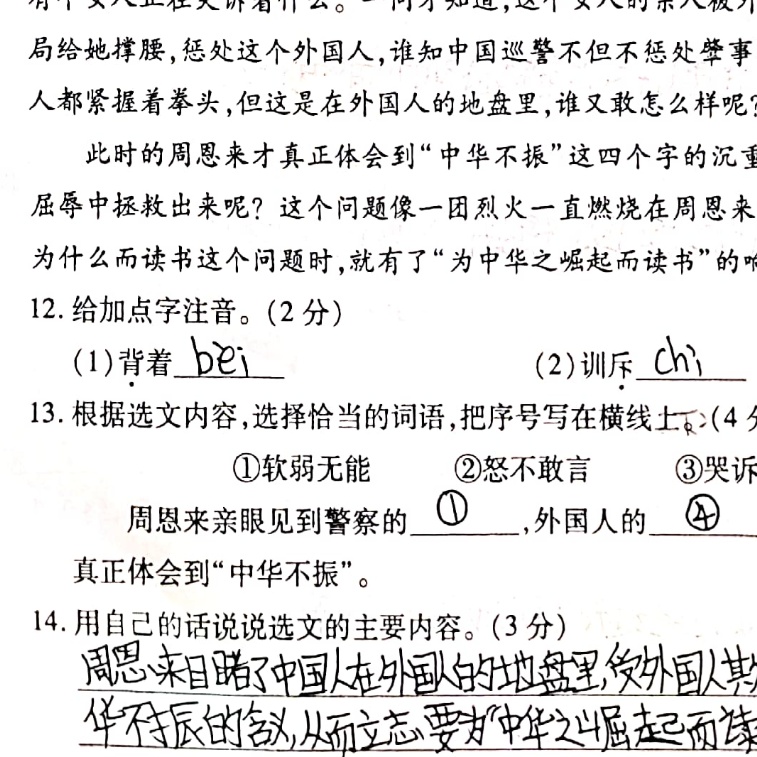 有个女人正在哭诉着什么。一问才知道,这个女人的亲人被外
局给她撑腰,惩处这个外国人,谁知中国巡警不但不惩处肇事
人都紧握着拳头,但这是在外国人的地盘里,谁又敢怎么样呢?
此时的周恩来才真正体会到“中华不振”这四个字的沉重
屈辱中拯救出来呢? 这个问题像一团烈火一直燃烧在周恩来
为什么而读书这个问题时,就有了“为中华之崛起而读书”的响
12. 给加点字注音。(2 分)
(1)背着 bēi (2)训斥 chì
13. 根据选文内容,选择恰当的词语,把序号写在横线上。(4 分
①软弱无能 ②怒不敢言 ③哭诉
周恩来亲眼见到警察的 ① ,外国人的 ④
真正体会到“中华不振”。
14. 用自己的话说说选文的主要内容。(3 分)
周恩来目睹了中国人在外国人的地盘里,受外国人欺
华不振的含义,从而立志要为“中华之崛起而读